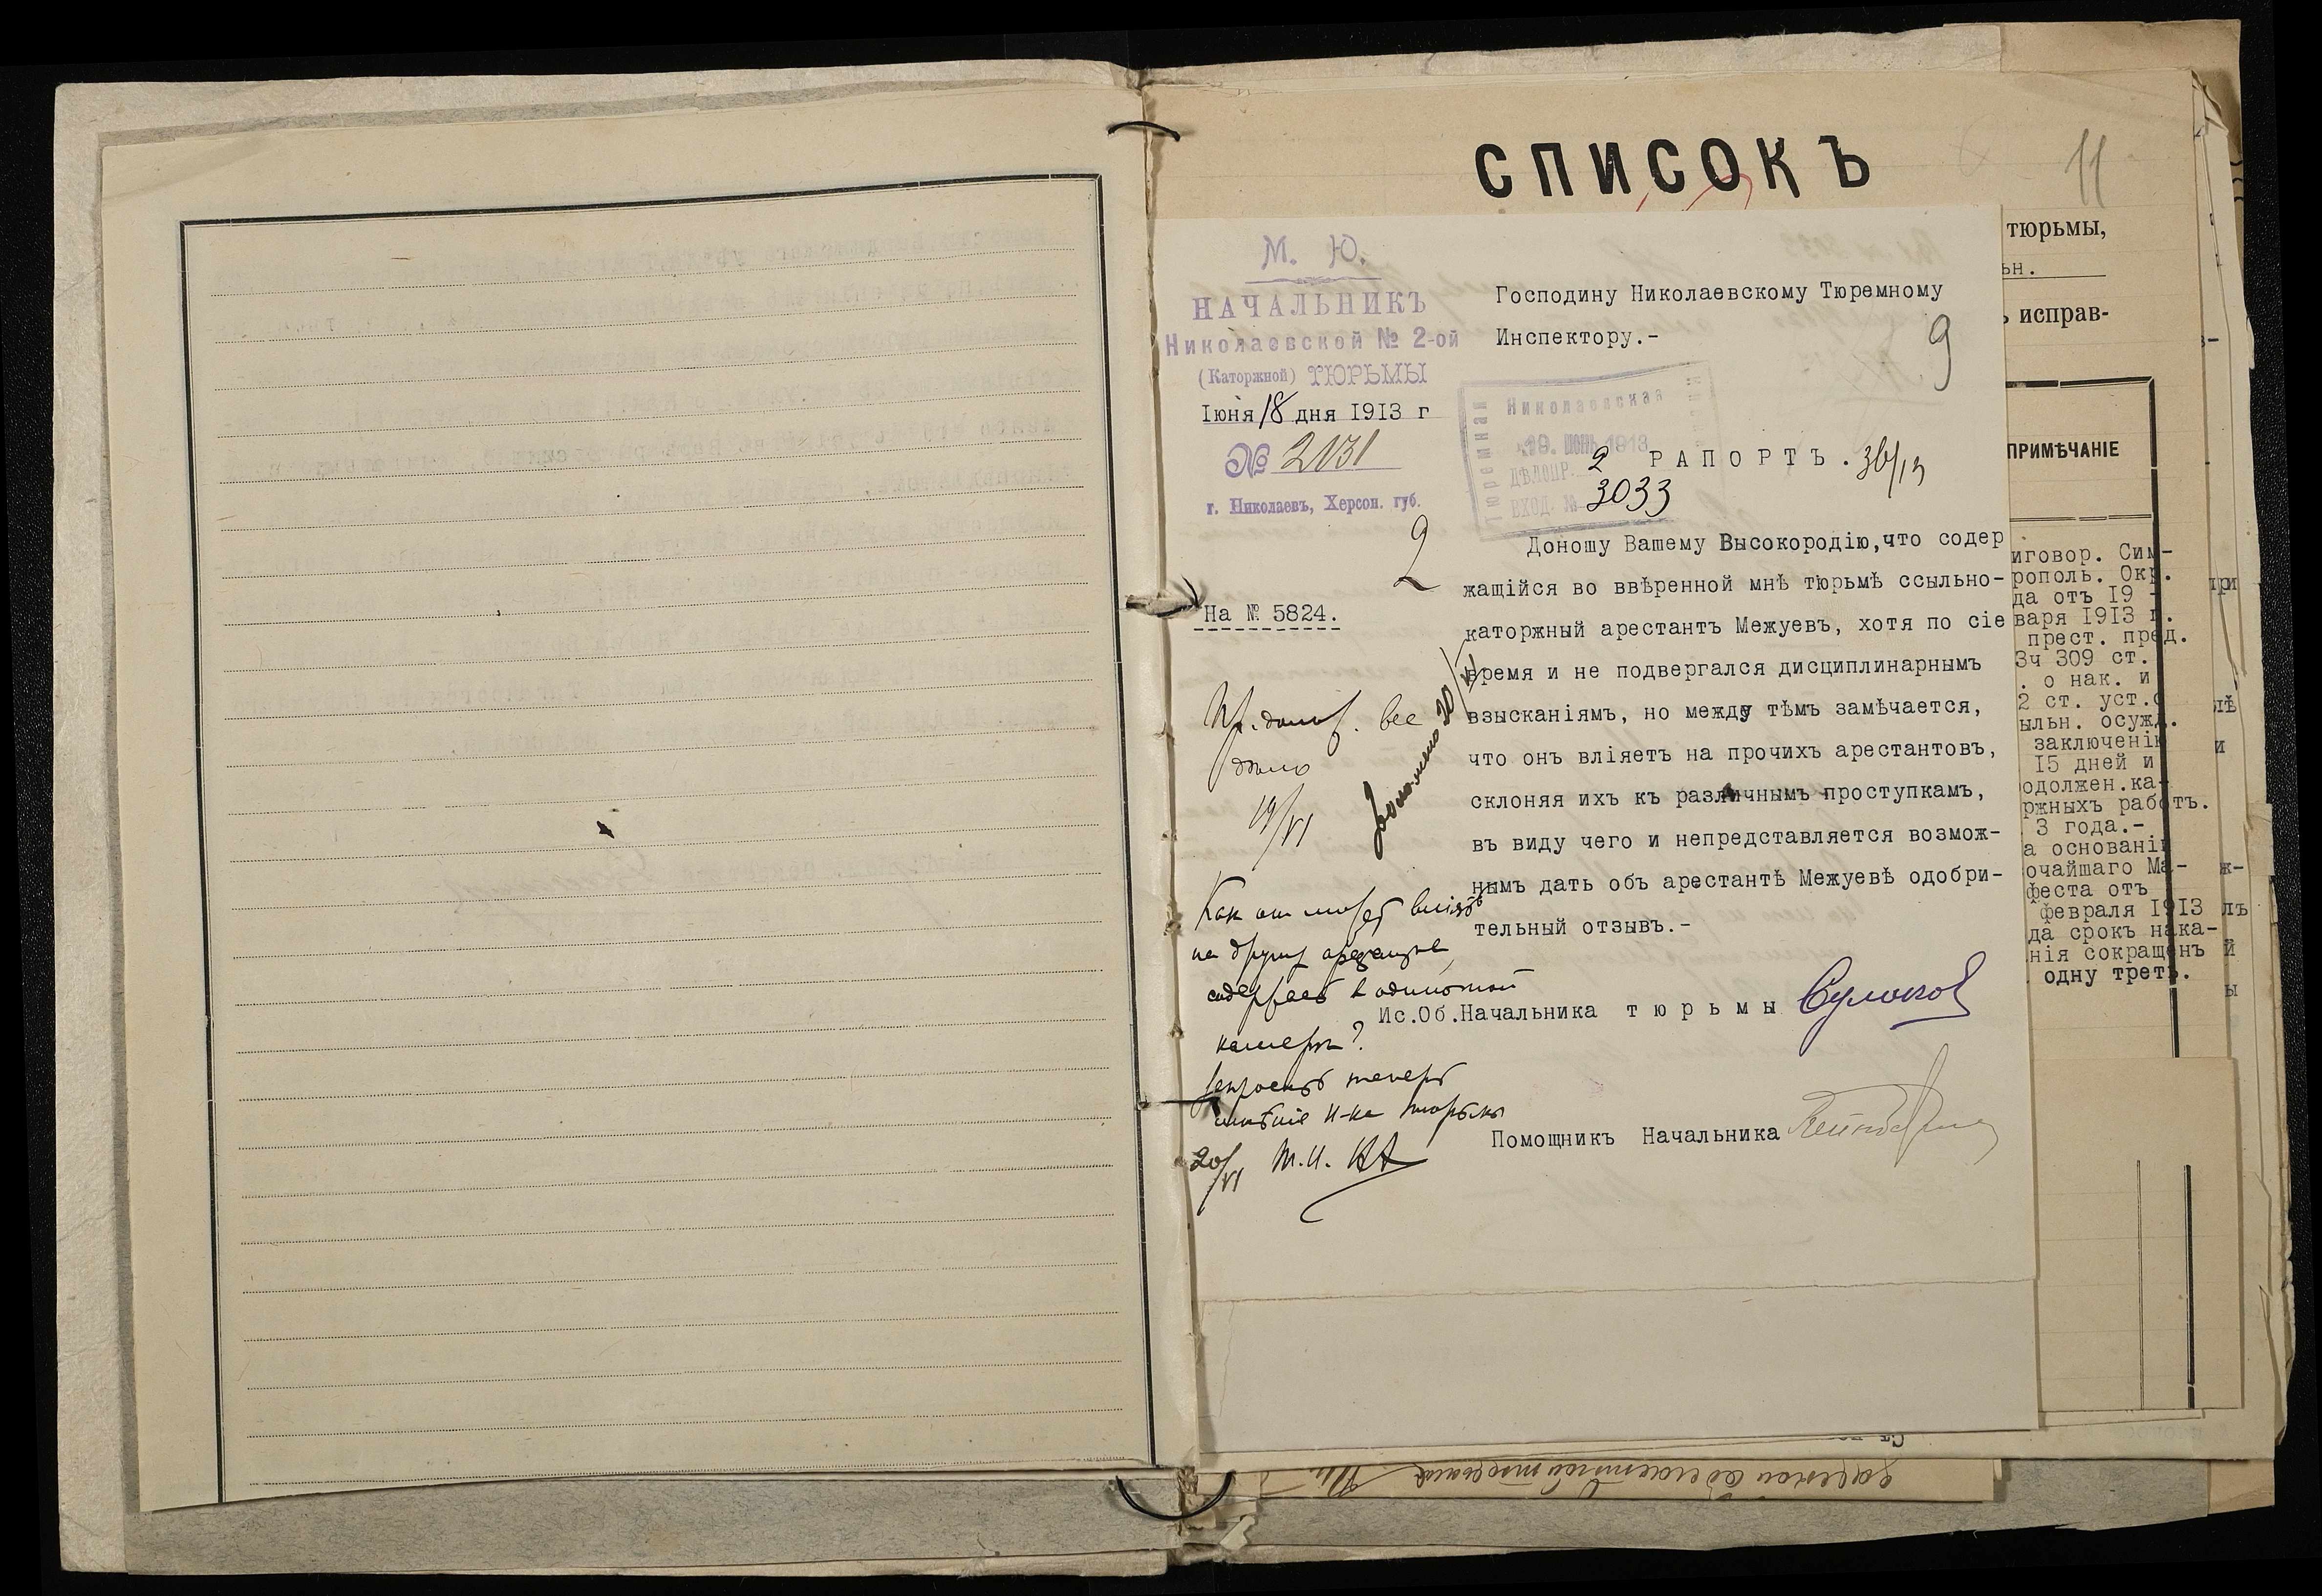 СПИСОКЪ
11
тюрьмы,
ьн.
исправ-
ПРИМѢЧАНІЕ
М. Ю.
НАЧАЛЬНИКЪ
Николаевской № 2-ой
(Каторжной) ТЮРЬМЫ
Іюня 18 дня 1913 г
№ 2131
г. Николаевъ, Херсон. губ.
2
На № 5824.
Господину Николаевскому Тюремному
Инспектору.-
9
Николаевская
Тюремная
19. ИЮНЬ 1913
ДѢЛОПР. 2
ВХОД. № 3033
РАПОРТЪ. 36/13
Доношу Вашему Высокородію,что содер
жащійся во ввѣренной мнѣ тюрьмѣ ссыльно-
каторжный арестантъ Межуевъ, хотя по сіе
время и не подвергался дисциплинарнымъ
взысканіямъ, но между тѣмъ замѣчается,
что онъ вліяетъ на прочихъ арестантовъ,
склоняя ихъ къ различнымъ проступкамъ,
въ виду чего и непредставляется возмож-
нымъ дать объ арестантѣ Межуевѣ одобри-
тельный отзывъ.-
Ис.Об.Начальника тюрьмы
Помощникъ Начальника
все
дѣло
19/VI
Доложено 20/VI
Какъ он может вліять
на других арестантов
содержась в одиночной
камерѣ?
Запросить теперь
мнѣніе Н-ка тюрьмы
20/VI Т.И.
иговор. Сим-
рополь. Окр.
да отъ 19 -
варя 1913 г.
прест. пред.
3ч 309 ст.
. о нак. и
2 ст. уст.о
ыльн. осужд.
заключенію
15 дней и
одолжен.ка-
ржныхъ работъ.
3 года.-
а основаніи
очайшаго Ма-
феста отъ
февраля 1913
да срокъ нака-
нія сокращенъ
одну треть.
при
лѣ
и
ж-
лъ
й
ы